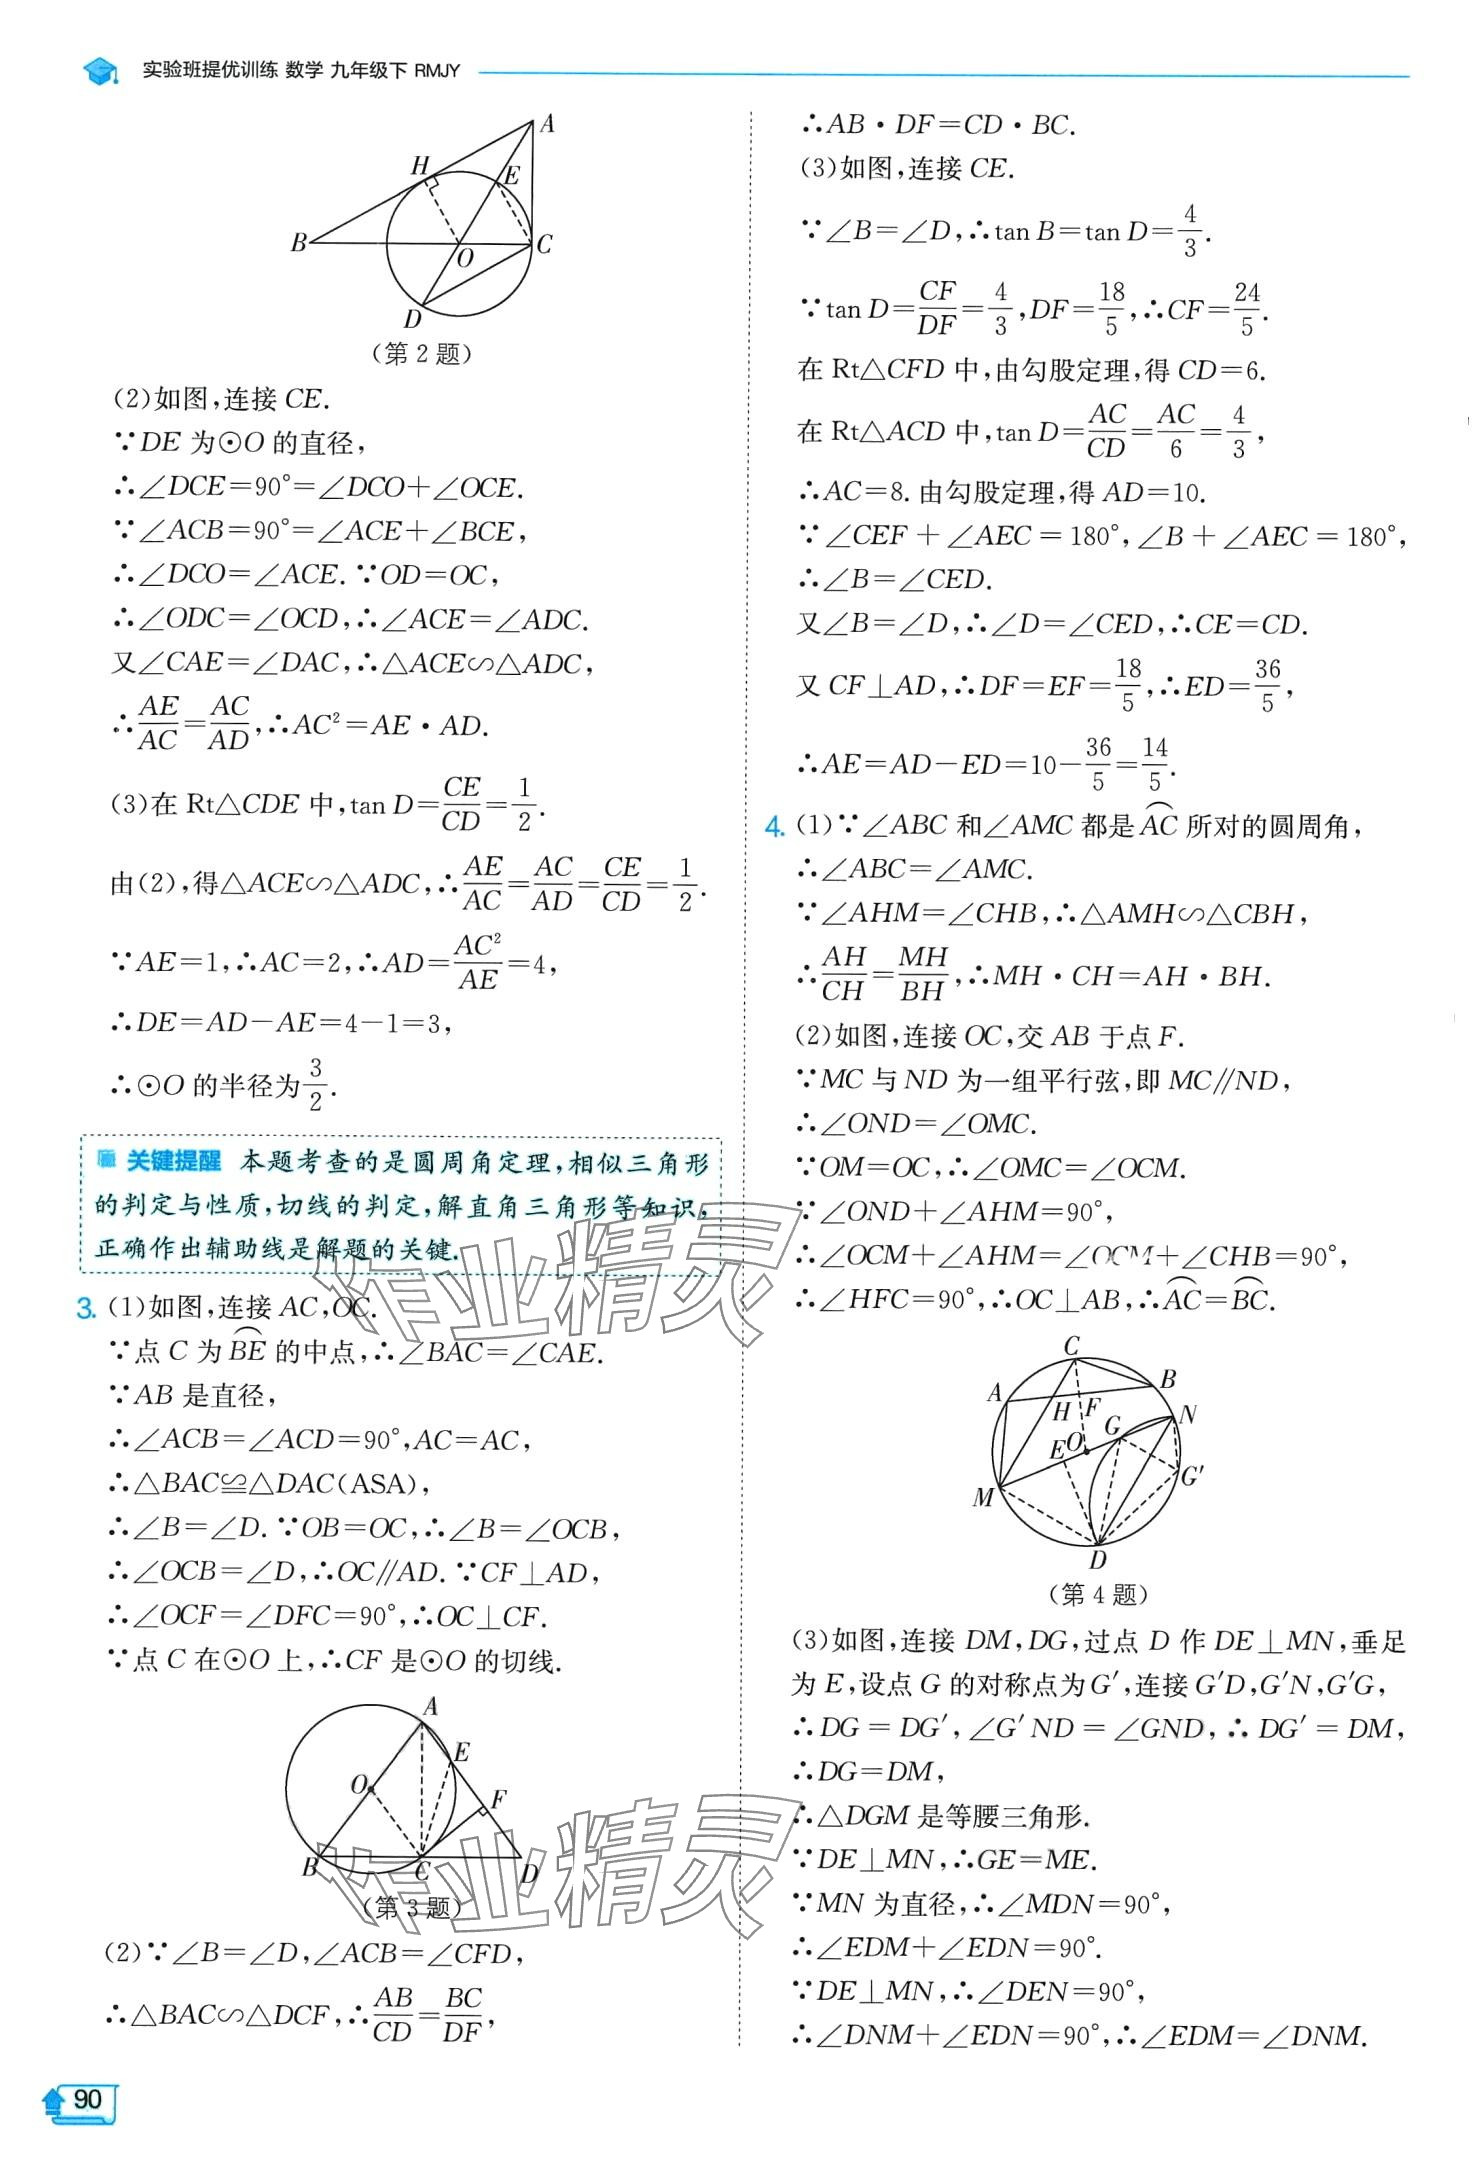 实验班提优训练 数学 九年级下 RMJY
A
H
E
B
O
C
D
(第2题)
(2)如图,连接CE.
∵DE为⊙O的直径,
∴∠DCE=90°=∠DCO+∠OCE.
∵∠ACB=90°=∠ACE+∠BCE,
∴∠DCO=∠ACE.∵OD=OC,
∴∠ODC=∠OCD,∴∠ACE=∠ADC.
又∠CAE=∠DAC,∴△ACE∽△ADC,
∴AE/AC=AC/AD,∴AC²=AE·AD.
(3)在Rt△CDE中,tan D=CE/CD=1/2.
由(2),得△ACE∽△ADC,∴AE/AC=AC/AD=CE/CD=1/2.
∵AE=1,∴AC=2,∴AD=AC²/AE=4,
∴DE=AD-AE=4-1=3,
∴⊙O的半径为3/2.
关键提醒 本题考查的是圆周角定理,相似三角形
的判定与性质,切线的判定,解直角三角形等知识,
正确作出辅助线是解题的关键.
3. (1)如图,连接AC,OC.
∵点C为⌒BE的中点,∴∠BAC=∠CAE.
∵AB是直径,
∴∠ACB=∠ACD=90°,AC=AC,
∴△BAC≌△DAC(ASA),
∴∠B=∠D.∵OB=OC,∴∠B=∠OCB,
∴∠OCB=∠D,∴OC∥AD.∵CF⊥AD,
∴∠OCF=∠DFC=90°,∴OC⊥CF.
∵点C在⊙O上,∴CF是⊙O的切线.
A
E
O
F
B
C
D
(第3题)
(2)∵∠B=∠D,∠ACB=∠CFD,
∴△BAC∽△DCF,∴AB/CD=BC/DF,
∴AB·DF=CD·BC.
(3)如图,连接CE.
∵∠B=∠D,∴tan B=tan D=4/3.
∵tan D=CF/DF=4/3,DF=18/5,∴CF=24/5.
在Rt△CFD中,由勾股定理,得CD=6.
在Rt△ACD中,tan D=AC/CD=AC/6=4/3,
∴AC=8.由勾股定理,得AD=10.
∵∠CEF+∠AEC=180°,∠B+∠AEC=180°,
∴∠B=∠CED.
又∠B=∠D,∴∠D=∠CED,∴CE=CD.
又CF⊥AD,∴DF=EF=18/5,∴ED=36/5,
∴AE=AD-ED=10-36/5=14/5.
4. (1)∵∠ABC和∠AMC都是⌒AC所对的圆周角,
∴∠ABC=∠AMC.
∵∠AHM=∠CHB,∴△AMH∽△CBH,
∴AH/CH=MH/BH,∴MH·CH=AH·BH.
(2)如图,连接OC,交AB于点F.
∵MC与ND为一组平行弦,即MC∥ND,
∴∠OND=∠OMC.
∵OM=OC,∴∠OMC=∠OCM.
∵∠OND+∠AHM=90°,
∴∠OCM+∠AHM=∠OCM+∠CHB=90°,
∴∠HFC=90°,∴OC⊥AB,∴⌒AC=⌒BC.
C
A
B
H
F
N
G
E
O
G′
M
D
(第4题)
(3)如图,连接DM,DG,过点D作DE⊥MN,垂足
为E,设点G的对称点为G′,连接G′D,G′N,G′G,
∴DG=DG′,∠G′ND=∠GND,∴DG′=DM,
∴DG=DM,
∴△DGM是等腰三角形.
∵DE⊥MN,∴GE=ME.
∵MN为直径,∴∠MDN=90°,
∴∠EDM+∠EDN=90°.
∵DE⊥MN,∴∠DEN=90°,
∴∠DNM+∠EDN=90°,∴∠EDM=∠DNM.
90
作业精灵
作业精灵